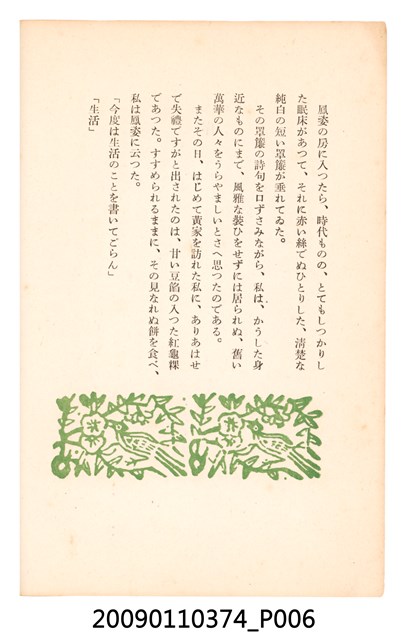 鳳姿の房に入つたら、時代ものの、とてもしつかりし
た眠床があつて、それに赤い絲でぬひとりした、淸楚な
純白の短い罩簾が垂れてゐた。
その罩簾の詩句を口ずさみながら、私は、かうした身
近なものにまで、風雅な裝ひをせずには居られぬ、舊い
萬華の人々をうらやましいとさへ思つたのである。
またその日、はじめて黃家を訪れた私に、ありあはせ
で失禮ですがと出されたのは、甘い豆餡の入つた紅龜粿
であつた。すすめられるままに、その見なれぬ餅を食べ、
私は鳳姿に云つた。
「今度は生活のことを書いてごらん」
「生活」
20090110374_P006